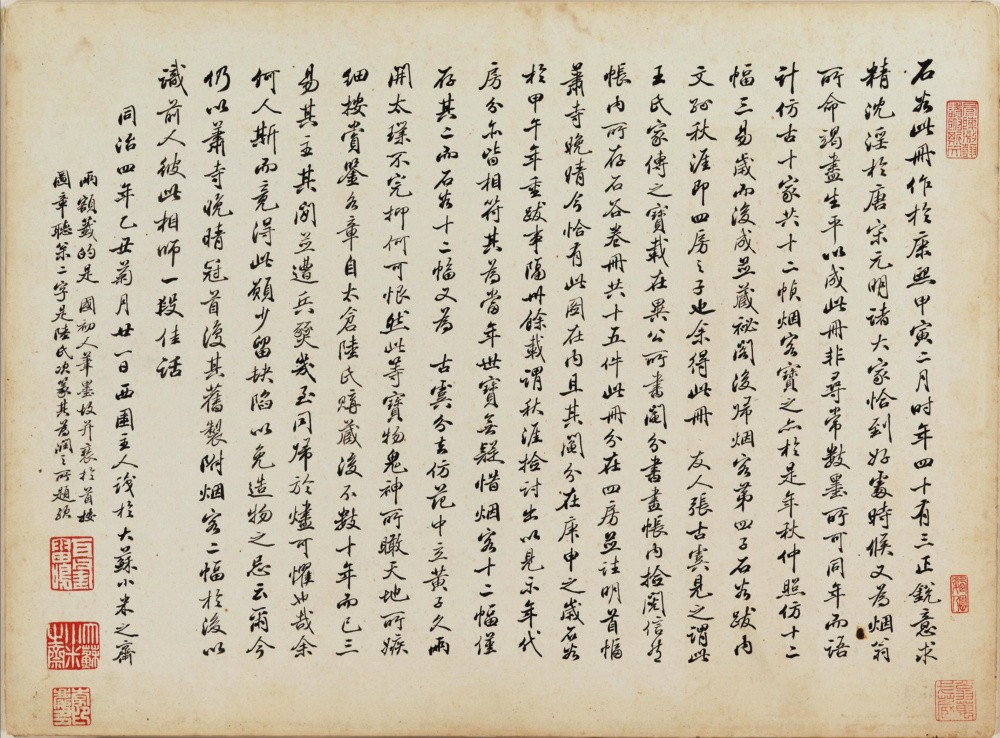 石谷此冊作於康熙甲寅二月時年四十有三正銳意求
精沈淫於唐宋元明諸大家恰到好處時候又為烟翁
所命竭盡生平以成此冊非尋常數墨所可同年而語
計仿古十家共十二幀烟客寶之亦於是年秋仲照仿十二
幅三易歲而後成並藏祕閣後歸烟客第四子石谷跋內
文孫秋涯即四房之子也余得此冊 友人張古虞見之謂此
王氏家傳之寶載在異公所書鬮分書畫帳內拾閱信然
帳內所存石谷卷冊共十五件此冊分在四房並註明首幅
蕭寺晚晴今恰有此圖在內且其鬮分在庚申之歲石谷
於甲午年重跋事隔卅餘載謂秋涯拾討出以見示年代
房分亦皆相符其為當年世寶無疑惜烟客十二幅僅
存其二而石谷十二幅又為 古虞分去仿范中立黃子久兩
開太璞不完抑何可恨然此等寶物鬼神所瞰天地所嫉
細按賞鑒名章自太倉陸氏購藏後不數十年而已三
易其主其間並遭兵燹幾至同歸於燼可懼也哉余
何人斯而竟得此願少留缺陷以免造物之忌云爾今
仍以蕭寺晚晴冠首復其舊製附烟客二幅於後以
識前人彼此相師一段佳話
同治四年乙丑菊月廿一日西圃主人識於大蘇小米之齋
兩額籤的是 國初人筆墨故并裹於首按
圖章聽篆二字是陸氏次篆其為潤之所題歟
大蘇小米之齋